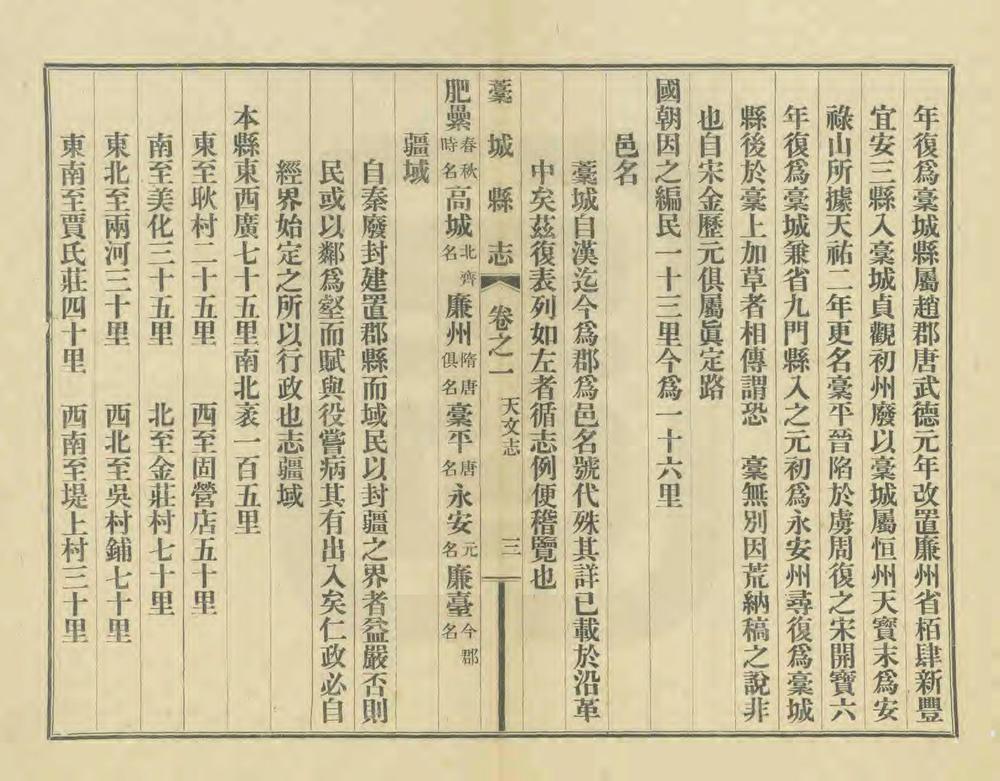 年復爲藁城縣屬趙郡唐武德元年改置廉州省栢肆新豐
宜安三縣入藁城貞觀初州廢以藁城屬恒州天寶末爲安
祿山所據天祐二年更名藁平晉陷於虜周復之宋開寶六
年復爲藁城兼省九門縣入之元初爲永安州尋復爲藁城
縣後於藁上加草者相傳謂恐　藁無別因荒納稿之說非
也自宋金歷元俱屬眞定路
國朝因之編民一十三里今爲一十六里
邑名
藁城自漢迄今爲郡爲邑名號代殊其詳已載於沿革
中矣茲復表列如左者循志例便稽覽也
藁城縣志　卷之一　天文志　三
肥纍春秋時名高城北齊名廉州隋唐俱名藁平唐名永安元名廉臺今郡名
疆域
自秦廢封建置郡縣而域民以封疆之界者益嚴否則
民或以鄰爲壑而賦與役嘗病其有出入矣仁政必自
經界始定之所以行政也志疆域
本縣東西廣七十五里南北袤一百五里
東至耿村二十五里　西至固營店五十里
南至美化三十五里　北至金莊村七十里
東北至兩河三十里　西北至吳村鋪七十里
東南至賈氏莊四十里　西南至堤上村三十里